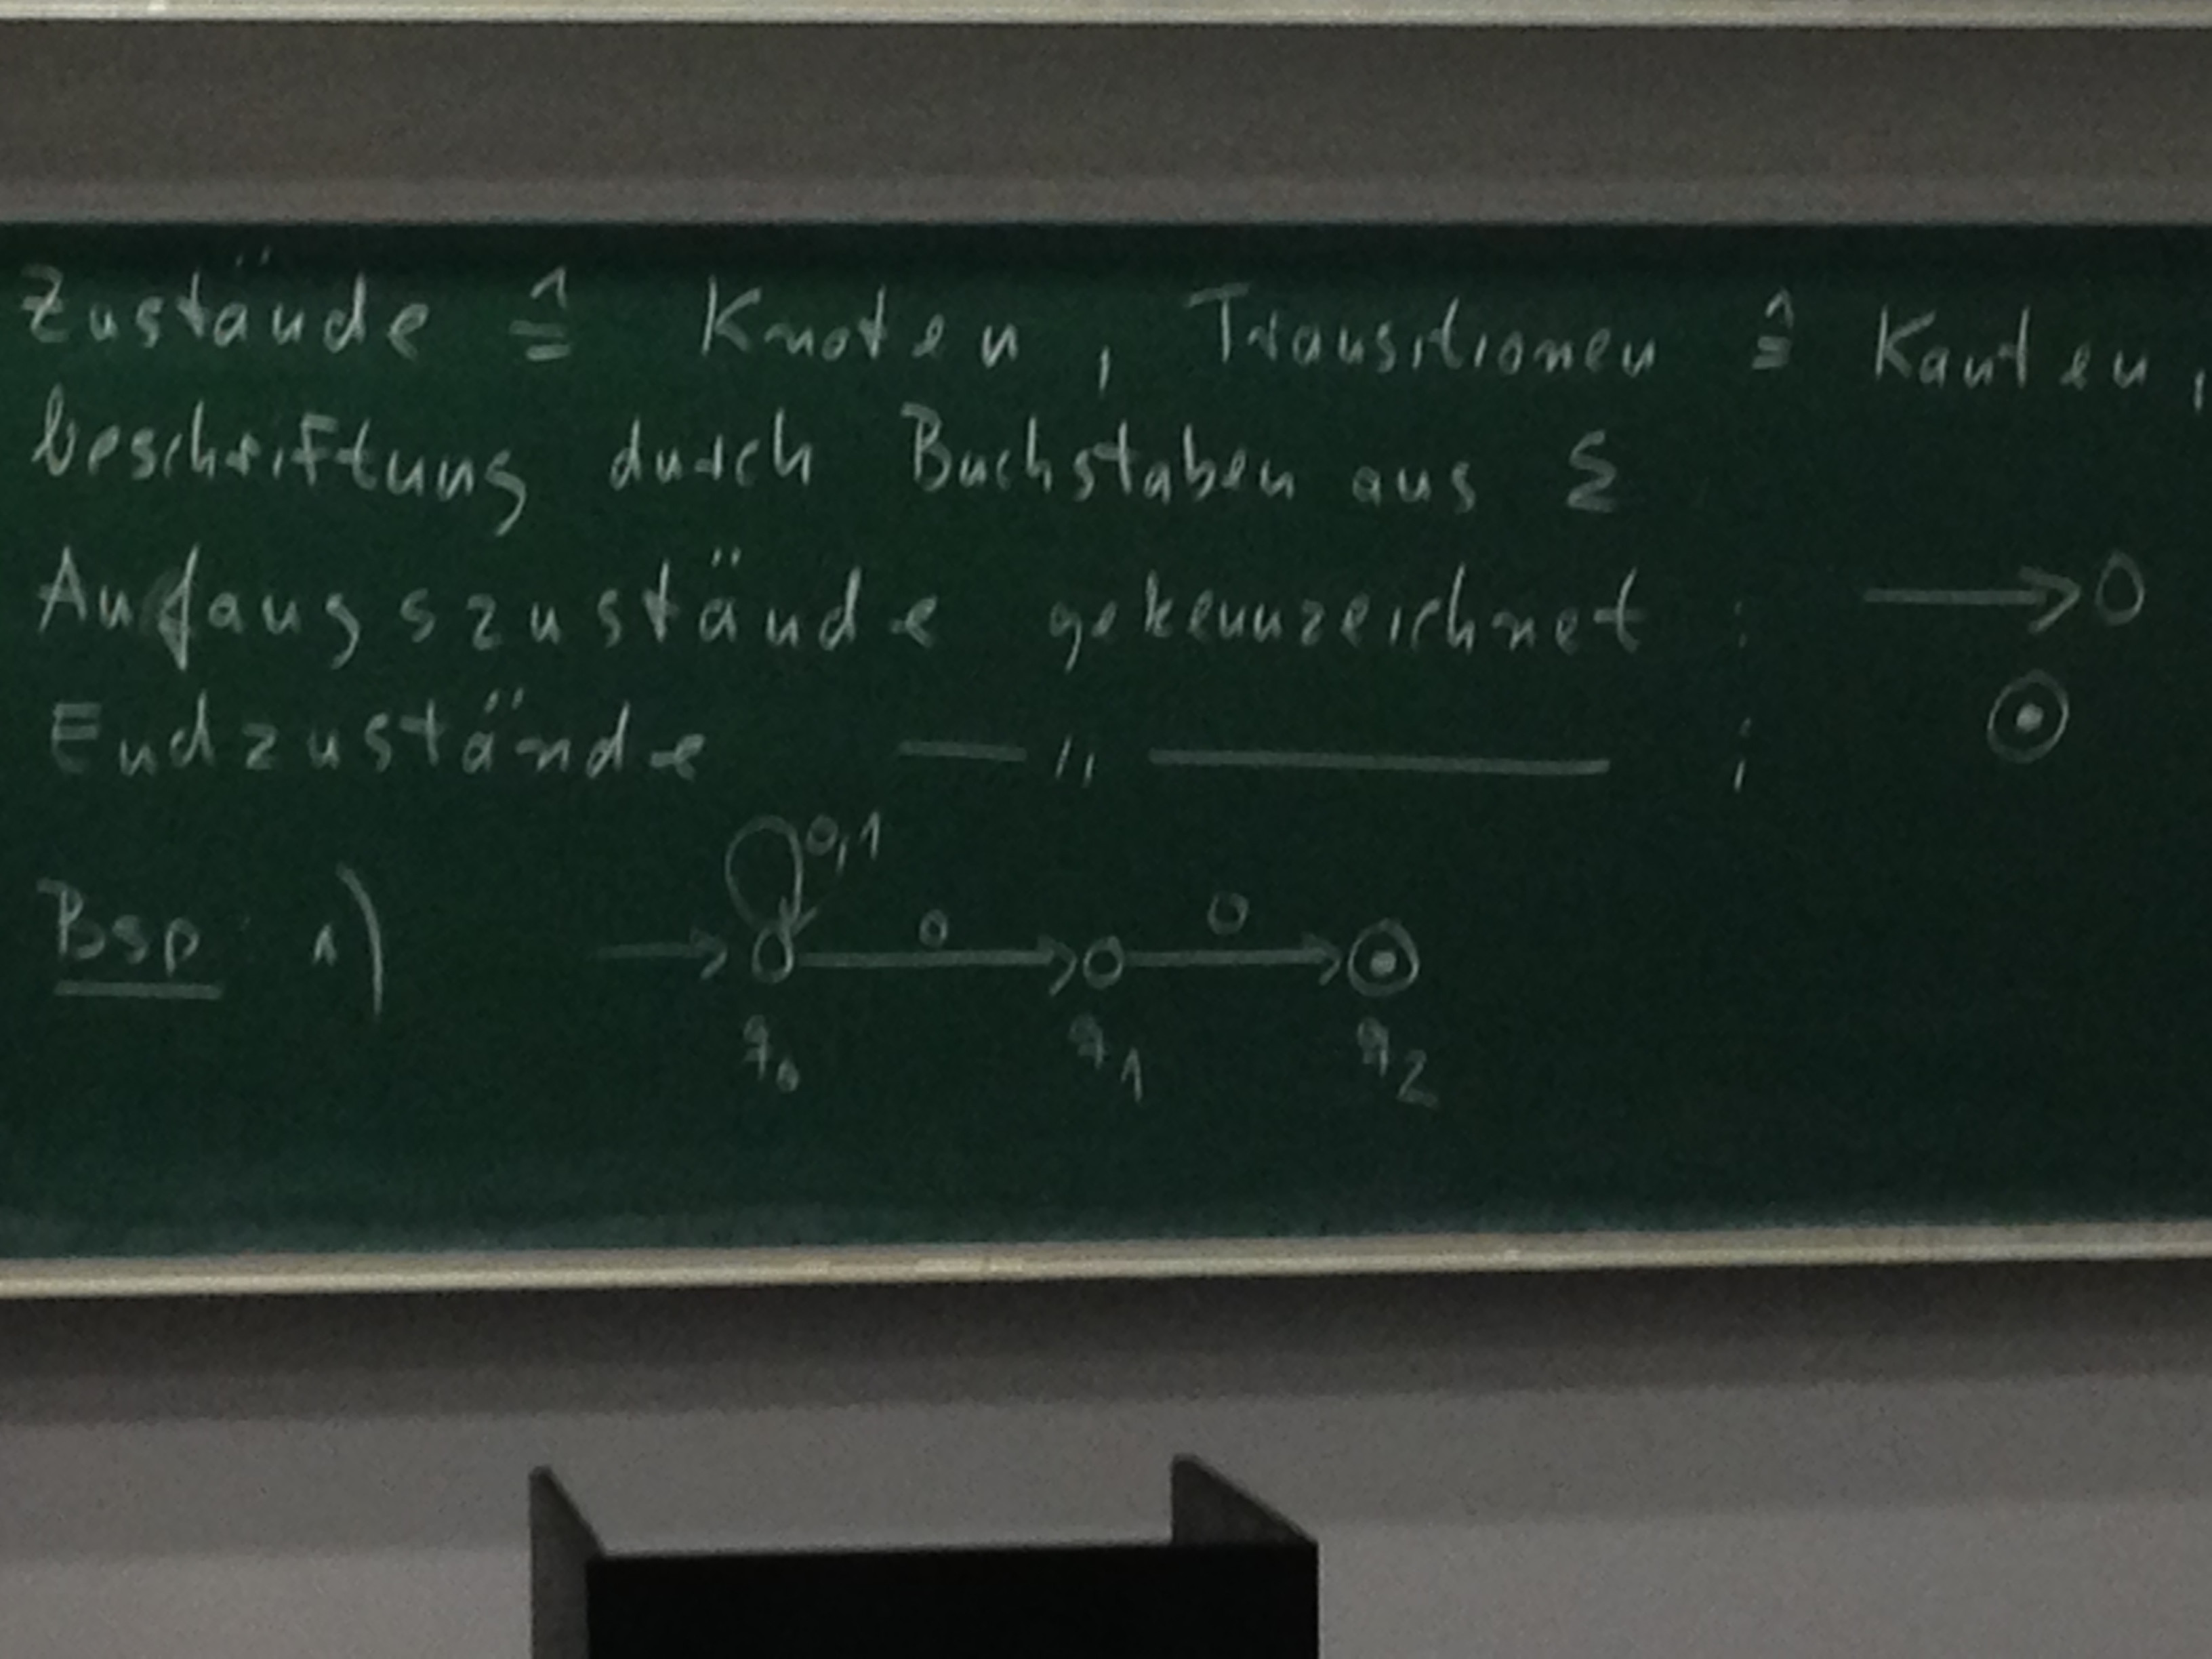 Zustände ≙ Knoten, Transitionen ≙ Kanten,
beschriftung durch Buchstaben aus Σ
Anfangszustände gekennzeichnet : →O
Endzustände —〃— : ⊙
0,1
Bsp 1) → 0 → 0 → ⊙
q₀ q₁ q₂